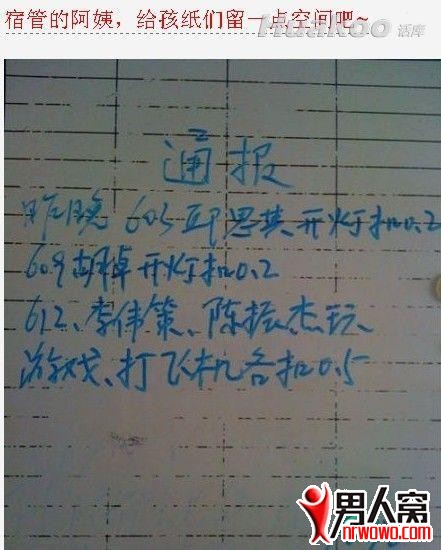 宿管的阿姨，给孩纸们留一点空间吧~
Huakoo 话库
通报
昨晚 605 邱思其 开灯扣0.2
609 胡棹 开灯扣0.2
612、李伟策、陈振杰玩、
游戏、打飞机各扣0.5
男人窝
nrwowo.com